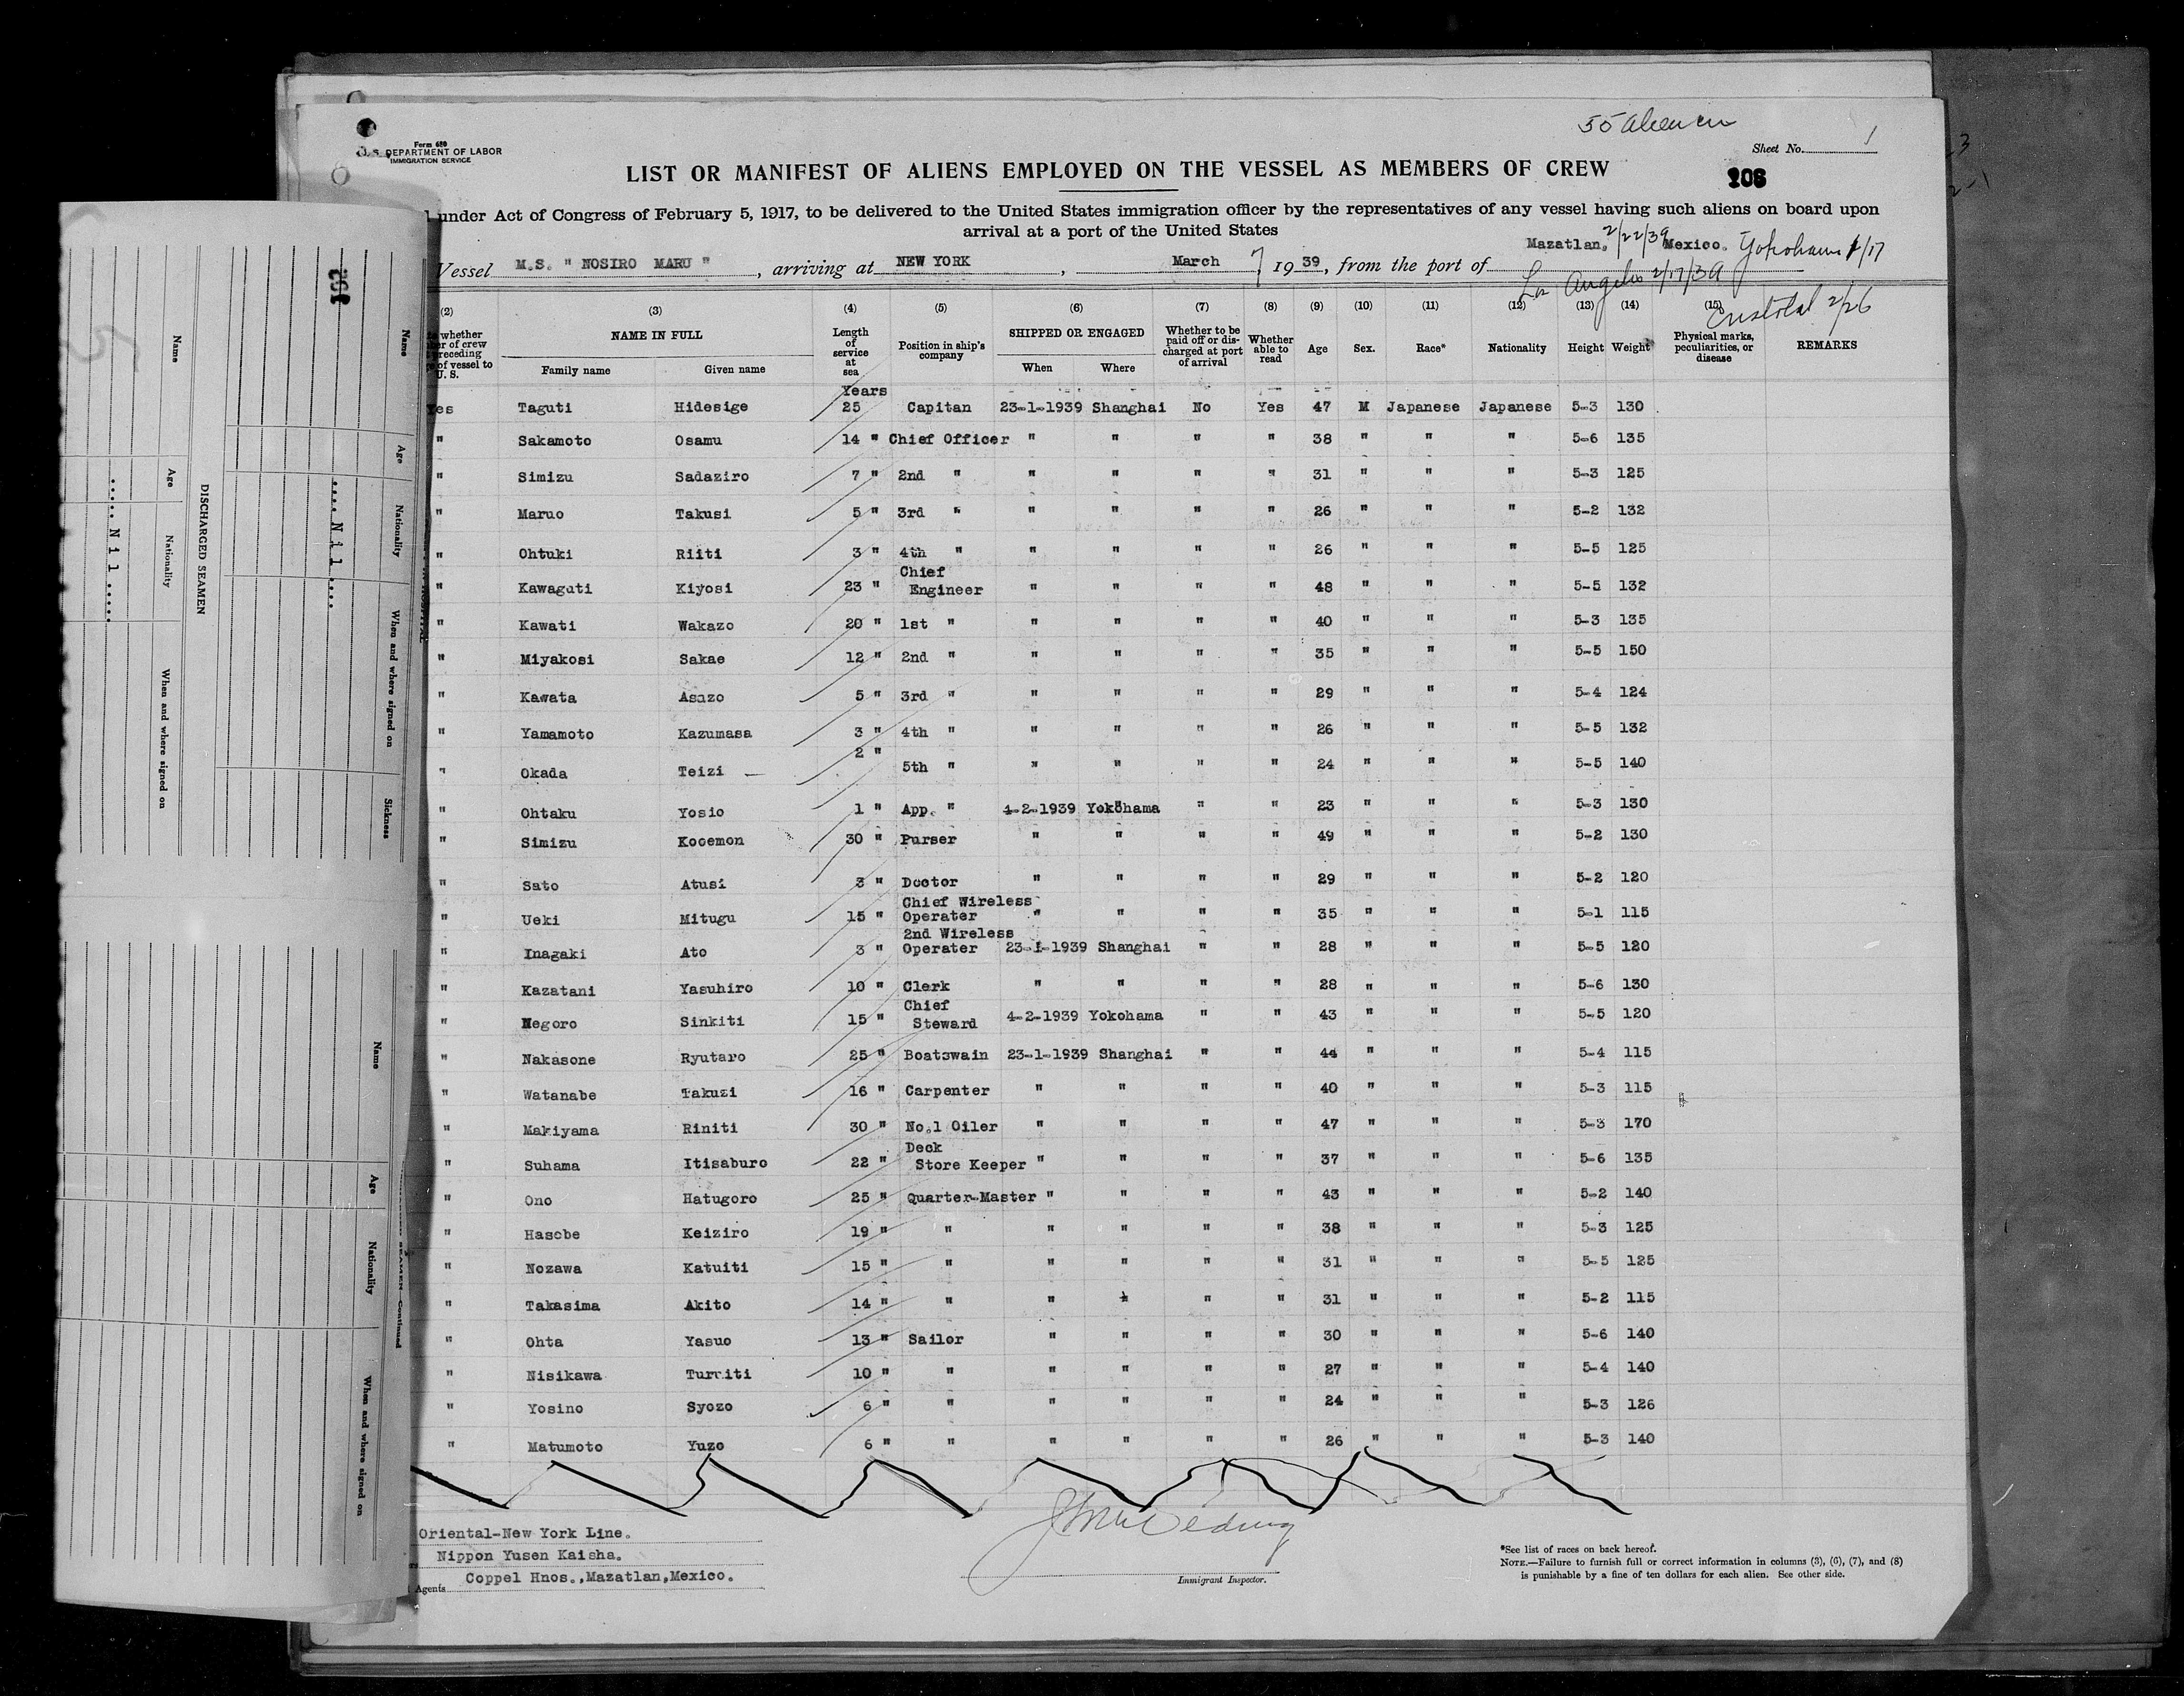 Form 680
U. S. DEPARTMENT OF LABOR
IMMIGRATION SERVICE
Sheet No. 1
LIST OR MANIFEST OF ALIENS EMPLOYED ON THE VESSEL AS MEMBERS OF CREW
under Act of Congress of February 5, 1917, to be delivered to the United States immigration officer by the representatives of any vessel having such aliens on board upon
arrival at a port of the United States
Mazatlan, 2/22/39 Mexico. Yokohama
Vessel M.S. " NOSIRO MARU ", arriving at NEW YORK, March 7 1939, from the port of
Los Angeles 2/17/39
Cristobal 2/26
(2) (3) (4) (5) (6) (7) (8) (9) (10) (11) (12) (13) (14) (15)
whether
of crew
preceding
of vessel to
U. S.
NAME IN FULL
Family name Given name
Length of service at sea
Position in ship's company
SHIPPED OR ENGAGED
When Where
Whether to be paid off or discharged at port of arrival
Whether able to read
Age Sex. Race* Nationality Height Weight
Physical marks, peculiarities, or disease
REMARKS
Years
Yes Taguti Hidesige 25 Capitan 23-1-1939 Shanghai No Yes 47 M Japanese Japanese 5-3 130
" Sakamoto Osamu 14 " Chief Officer " " " " 38 " " " 5-6 135
" Simizu Sadaziro 7 " 2nd " " " " " 31 " " " 5-3 125
" Maruo Takusi 5 " 3rd " " " " " 26 " " " 5-2 132
" Ohtuki Riiti 3 " 4th " " " " " 26 " " " 5-5 125
" Kawaguti Kiyosi 23 " Chief Engineer " " " " 48 " " " 5-5 132
" Kawati Wakazo 20 " 1st " " " " " 40 " " " 5-3 135
" Miyakosi Sakae 12 " 2nd " " " " " 35 " " " 5-5 150
" Kawata Asazo 5 " 3rd " " " " " 29 " " " 5-4 124
" Yamamoto Kazumasa 3 " 4th " " " " " 26 " " " 5-5 132
" Okada Teizi 2 " 5th " " " " " 24 " " " 5-5 140
" Ohtaku Yosio 1 " App. " 4-2-1939 Yokohama " " 23 " " " 5-3 130
" Simizu Kooemon 30 " Purser " " " " 49 " " " 5-2 130
" Sato Atusi 3 " Doctor " " " " 29 " " " 5-2 120
" Ueki Mitugu 15 " Chief Wireless Operater " " " " 35 " " " 5-1 115
" Inagaki Ato 3 " 2nd Wireless Operater 23-1-1939 Shanghai " " 28 " " " 5-5 120
" Kazatani Yasuhiro 10 " Clerk " " " " 28 " " " 5-6 130
" Negoro Sinkiti 15 " Chief Steward 4-2-1939 Yokohama " " 43 " " " 5-5 120
" Nakasone Ryutaro 25 " Boatswain 23-1-1939 Shanghai " " 44 " " " 5-4 115
" Watanabe Takuzi 16 " Carpenter " " " " 40 " " " 5-3 115
" Makiyama Riniti 30 " No.1 Oiler " " " " 47 " " " 5-3 170
" Suhama Itisaburo 22 " Deck Store Keeper " " " " 37 " " " 5-6 135
" Ono Hatugoro 25 " Quarter-Master " " " " 43 " " " 5-2 140
" Hasobe Keiziro 19 " " " " " " 38 " " " 5-3 125
" Nozawa Katuiti 15 " " " " " " 31 " " " 5-5 125
" Takasima Akito 14 " " " " " " 31 " " " 5-2 115
" Ohta Yasuo 13 " Sailor " " " " 30 " " " 5-6 140
" Nisikawa 10 " " " " " " 27 " " " 5-4 140
" Yosino Syozo 6 " " " " " " 24 " " " 5-3 126
" Matumoto Yuzo 6 " " " " " " 26 " " " 5-3 140
Oriental-New York Line.
Nippon Yusen Kaisha.
Agents Coppel Hnos.,Mazatlan,Mexico.
Immigrant Inspector.
*See list of races on back hereof.
NOTE.—Failure to furnish full or correct information in columns (3), (6), (7), and (8)
is punishable by a fine of ten dollars for each alien. See other side.
Name Age Nationality When and where signed on Sickness
.... Nil ....
DISCHARGED SEAMEN
Name Age Nationality When and where signed on
..... Nil .....
Name Age Nationality When and where signed on